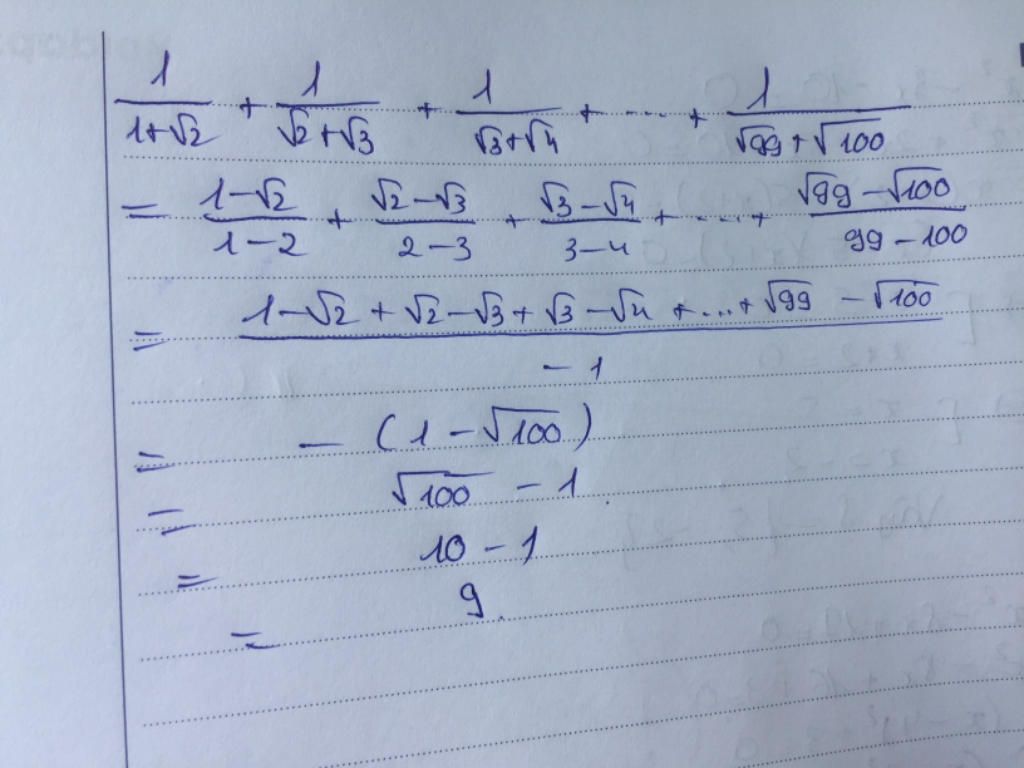 1/(1+√2) + 1/(√2+√3) + 1/(√3+√4) + .... + 1/(√99+√100)
= (1-√2)/(1-2) + (√2-√3)/(2-3) + (√3-√4)/(3-4) + .... + (√99-√100)/(99-100)
= (1-√2+√2-√3+√3-√4+...+√99-√100)/(-1)
= -(1-√100)
= √100 - 1.
= 10 - 1
= 9.